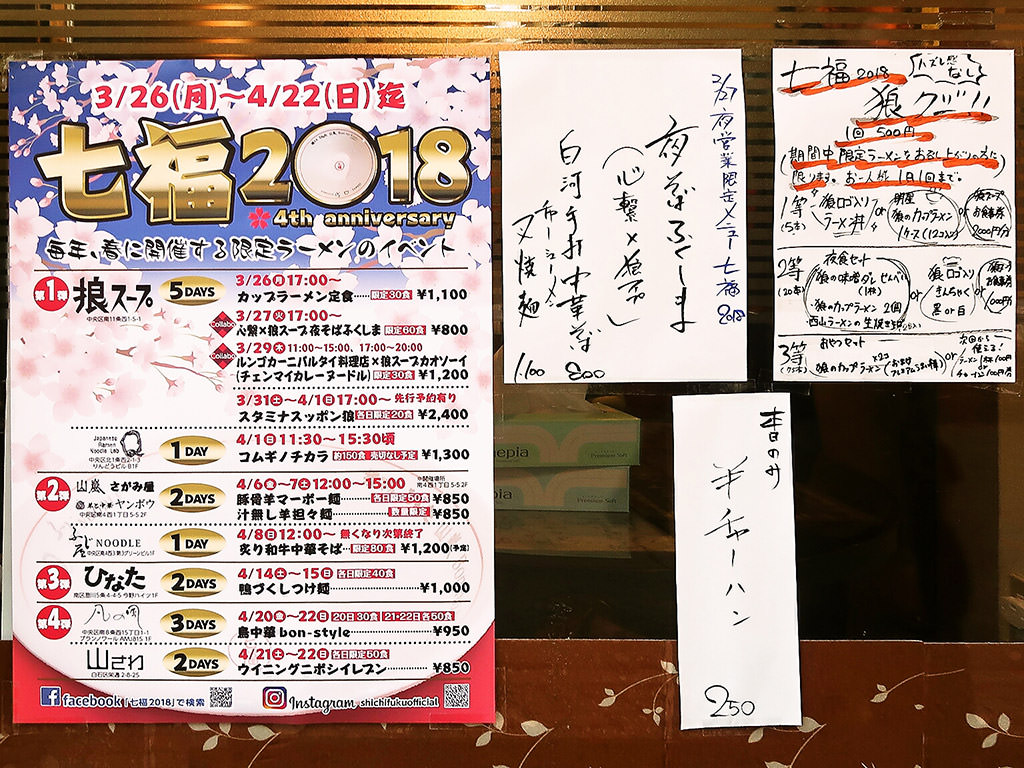 3/26(月)～4/22(日)迄
七福2018
4th anniversary
毎年、春に開催する限定ラーメンのイベント
第1弾 狼スープ 5DAYS
中央区南11条西1-5-1
3/26月17:00～
カップラーメン定食 限定30食 ¥1,100
Collabo 3/27火17:00～
心繋×狼スープ夜そばふくしま 限定60食 ¥800
Collabo 3/29木11:00～15:00、17:00～20:00
ルンゴカーニバルタイ料理店×狼スープカオソーイ
(チェンマイカレーヌードル) 限定30食 ¥1,200
3/31土～4/1日17:00～ 先行予約有り
スタミナスッポン狼 各日限定20食 ¥2,400
Japanese Ramen Noodle Lab Q 1DAY
中央区北1条西2-1-3
りんどうビル B1F
4/1日11:30～15:30頃
コムギノチカラ 約150食 売切なし予定 ¥1,300
第2弾 山嵐 さがみ屋 2DAYS
ヤンボウ
中央区南4西1丁目5-5-2F
4/6金～7土12:00～15:00
豚骨羊マーボー麺 各日限定50食 ¥850
汁無し羊担々麺 数量限定 ¥850
ふじ屋NOODLE 1DAY
4/8日12:00～ 無くなり次第終了
炙り和牛中華そば 限定80食 ¥1,200(予定)
第3弾 ひなた 2DAYS
4/14土～15日 各日限定40食
鴨づくしつけ麺 ¥1,000
第4弾 凡の風 3DAYS
中央区南8条西15丁目1-1
ブランノワールAMJ815 1F
4/20金～22日 20日30食 21・22日各50食
鳥中華bon-style ¥950
山さわ 2DAYS
白石区栄通2-8-25
4/21土～22日 各日限定50食
ウイニングニボシイレブン ¥850
facebook「七福2018」で検索
Instagram shichifukuofficial
3/27 夜営業限定メニュー 七福2018
夜そばふくしま
(心繋×狼スープ)
白河手打中華そば 800
チャーシューメン
叉焼麺 1,100
七福2018 ハズレ感なし!
狼クジ!!
1回500円
期間中限定ラーメンをお召し上がりの方に
限ります。お一人様1日1回まで。
1等 狼ロゴ入り ラーメン丼 or 狼のカップラーメン 1ケース(12コ入り) or 狼スープ お食事券 2000円分
(5本)
2等 夜食セット
(20本) ・狼の味噌ダレせんべい(1枚)
・狼のカップラーメン 2個
・西山ラーメンの生焼き
or 狼ロゴ入り きんちゃく 黒or白 or お食事券 1000円分
3等 おやつセット
(75本) 狼のカップラーメン×2コ
or 次回から使える! ラーメン1杯100円 or チャーハン100円分
本日のみ
半チャーハン
250
nepia
Premium Soft
pia
Premium Soft